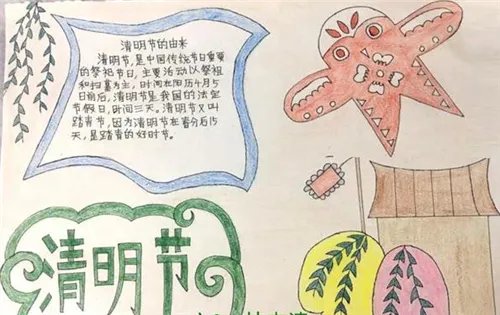 清明节的由来
清明节,是中国传统节日重要
的祭祖节日,主要活动以祭祖
和扫墓为主,时间在阳历4月5
日前后,清明节是我国的法定
节假日,时间三天。清明节又叫
踏青节,因为清明节在春分后15
天,是踏青的好时节。
清明节